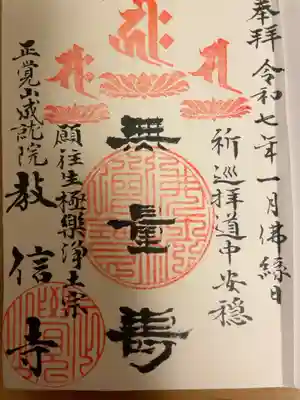 奉拝 令和七年一月佛縁日
祈巡拝道中安穏
無量寿
願往生極樂浄土宗
正覚山成就院
教信寺